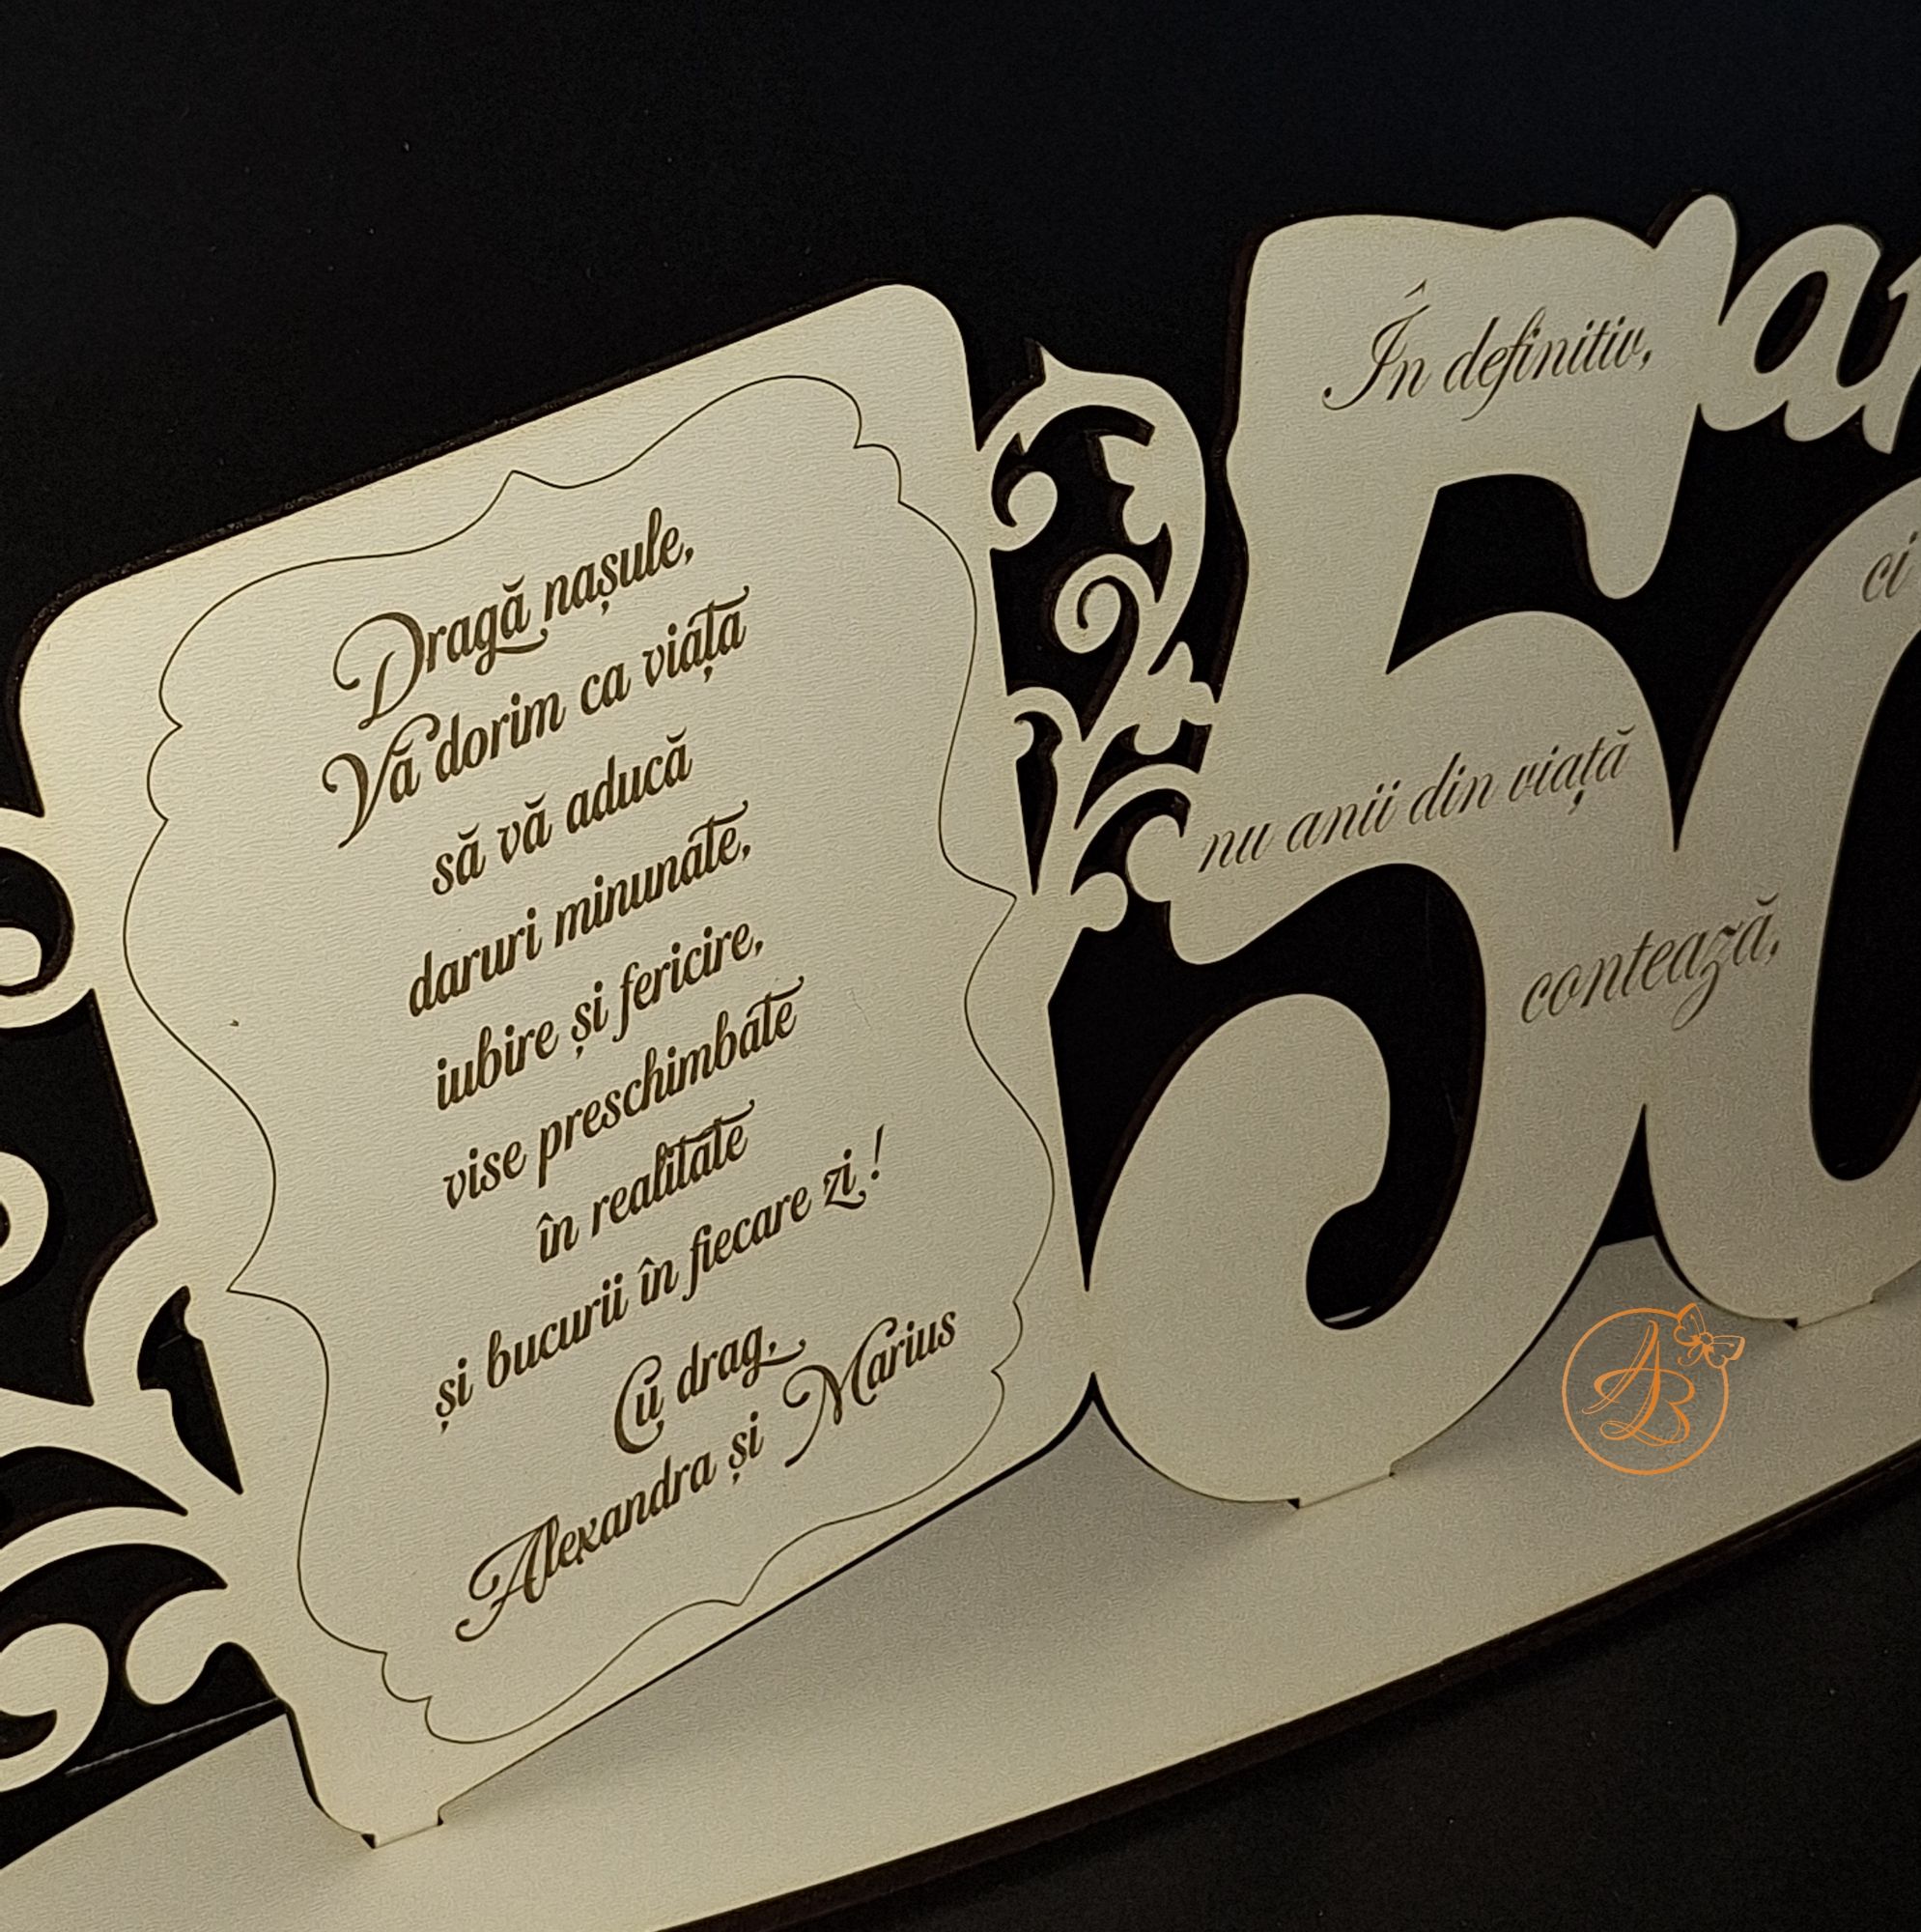 Dragă nașule,
Vă dorim ca viața
să vă aducă
daruri minunate,
iubire și fericire,
vise preschimbate
în realitate
și bucurii în fiecare zi !
Cu drag,
Alexandra și Marius
50
În definitiv,
nu anii din viață
contează,
ci
AB